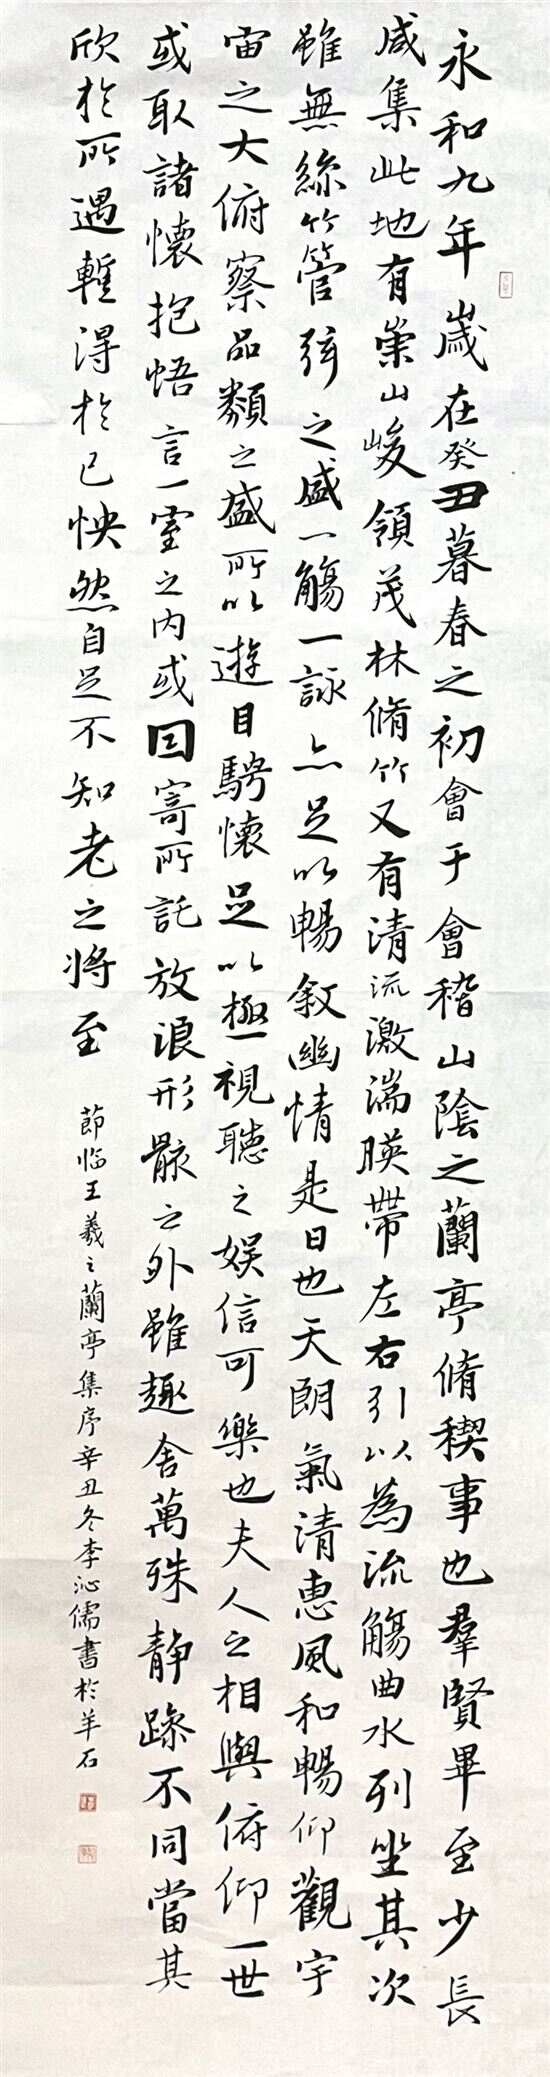 永和九年歲在癸丑暮春之初會于會稽山陰之蘭亭脩稧事也羣賢畢至少長
咸集此地有崇山峻領茂林脩竹又有清流激湍暎帶左右引以為流觴曲水列坐其次
雖無絲竹管弦之盛一觴一詠亦足以暢叙幽情是日也天朗氣清惠風和暢仰觀宇
宙之大俯察品類之盛所以遊目騁懷足以極視聽之娛信可樂也夫人之相與俯仰一世
或取諸懷抱悟言一室之内或因寄所託放浪形骸之外雖趣舍萬殊静躁不同當其
欣於所遇暫得於己怏然自足不知老之將至
節臨王羲之蘭亭集序辛丑冬李沁儒書於羊石